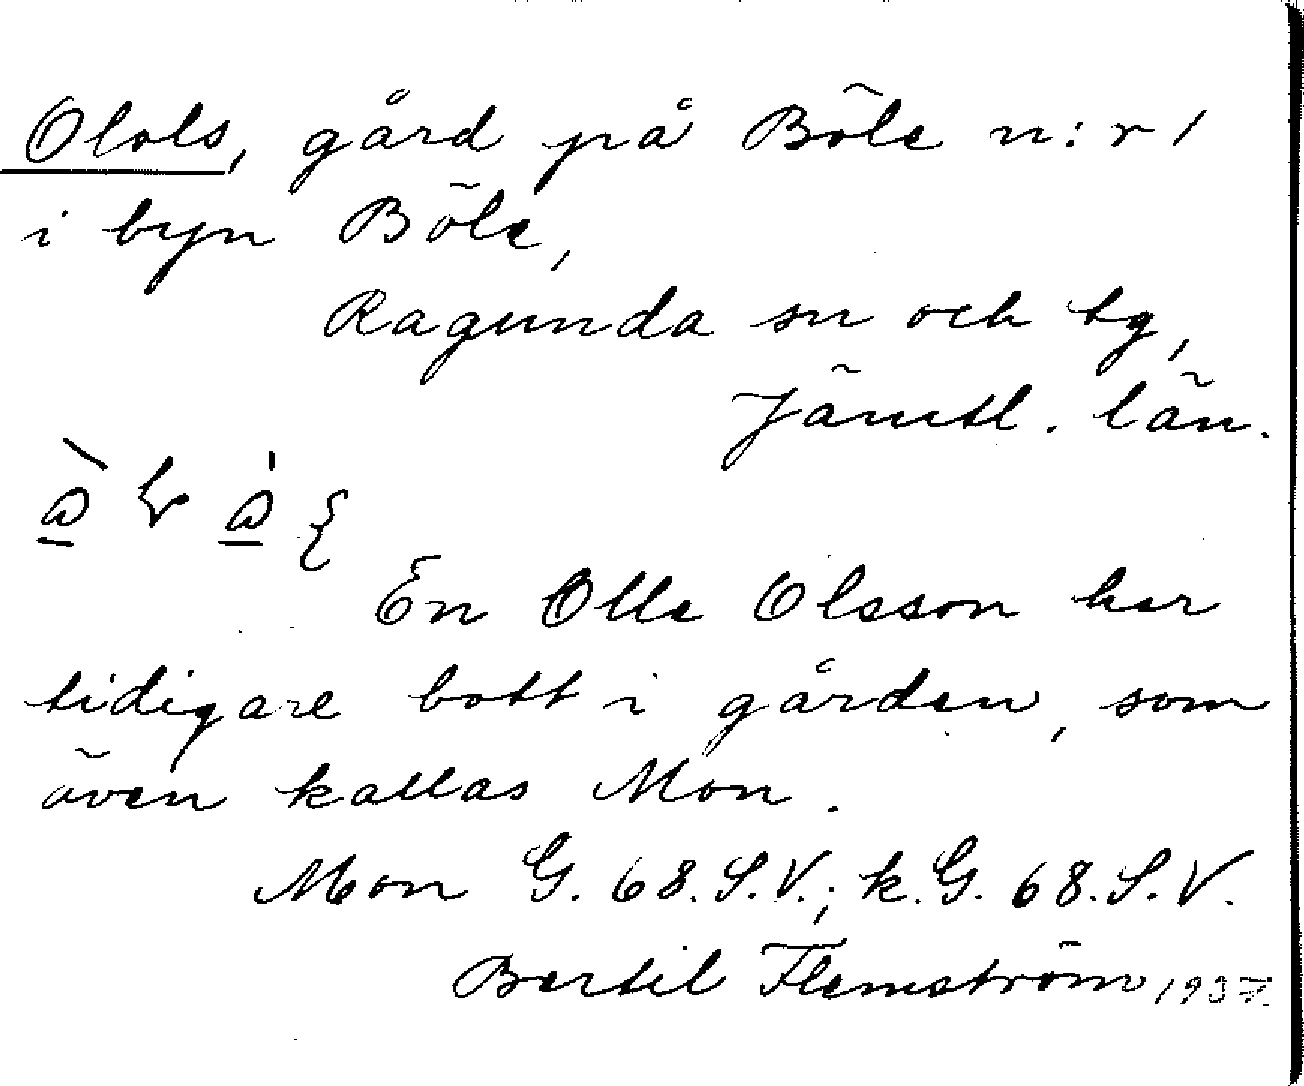 Olols, gård på Böle n:r 1
i byn Böle,
Ragunda sn och tg,
Jämtl. län.
En Olle Olsson har
tidigare bott i gården, som
även kallas Mon.
Mon G. 68. S.V.; k. G. 68. S.V.
Bertil Flemström 1937.